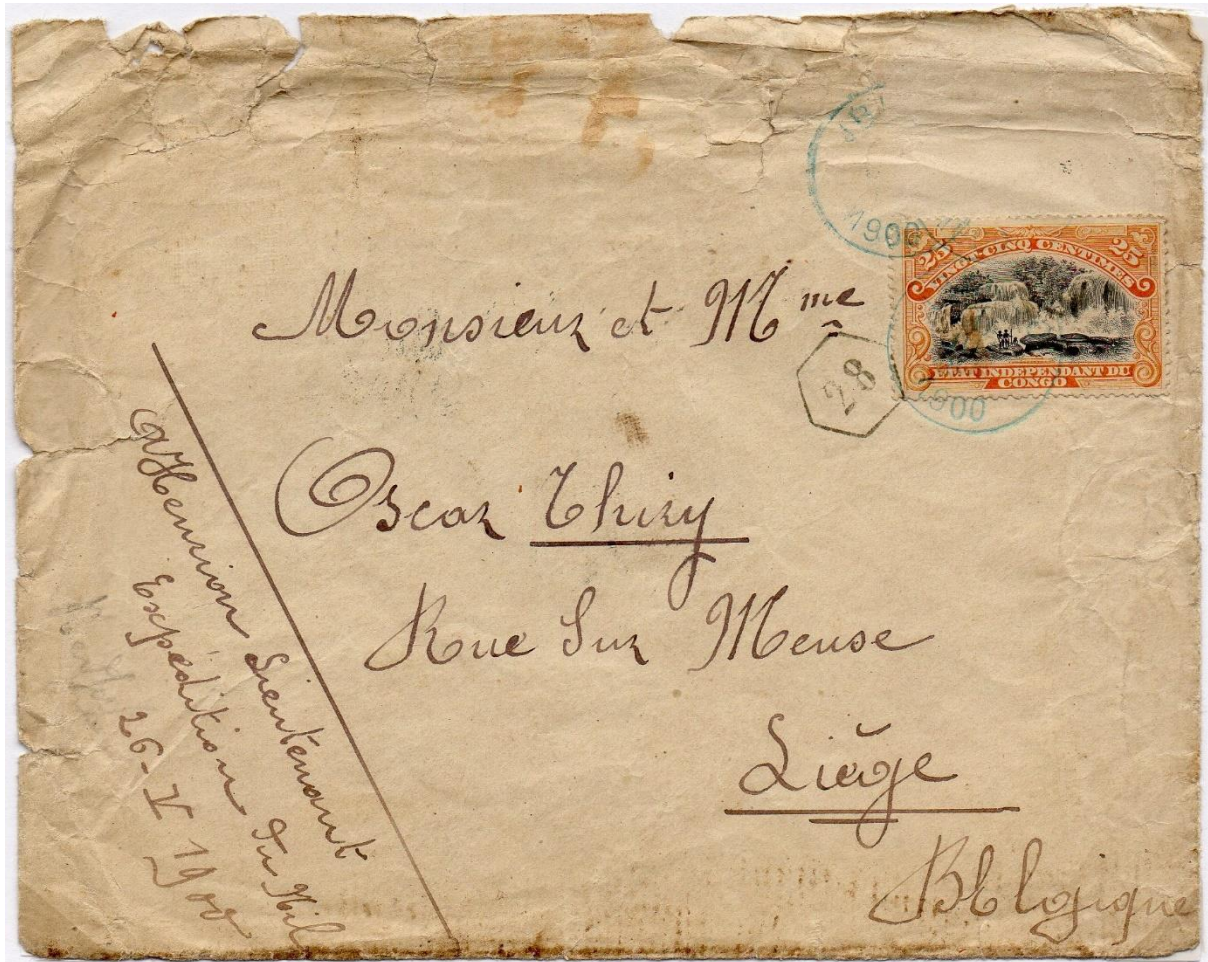 1900
25 25
VINGT-CINQ CENTIMES
ETAT INDEPENDANT DU
CONGO
1900
28
Monsieur et Mme
Oscar Thiry
Rue Sur Meuse
Liège
Blelgique
Henrion Lieutenant
Expédition du Nil
26-V 1900